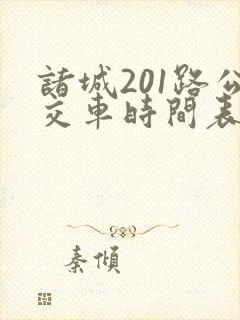 諸城201路公
交車時間表
秦傾